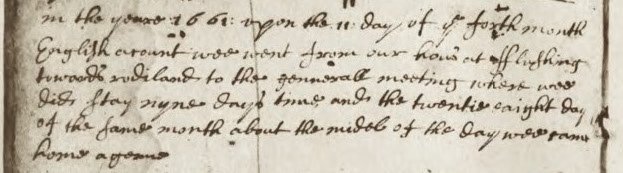 in the yeare: 1661: vpon the :11: day of ye forth month
English acount wee went from our hous at fflushing
towards rodiland to the gennerall meeting where wee
did stay nyne days time and the twentie eaight day
of the same month about the midel of the day wee came
home againe